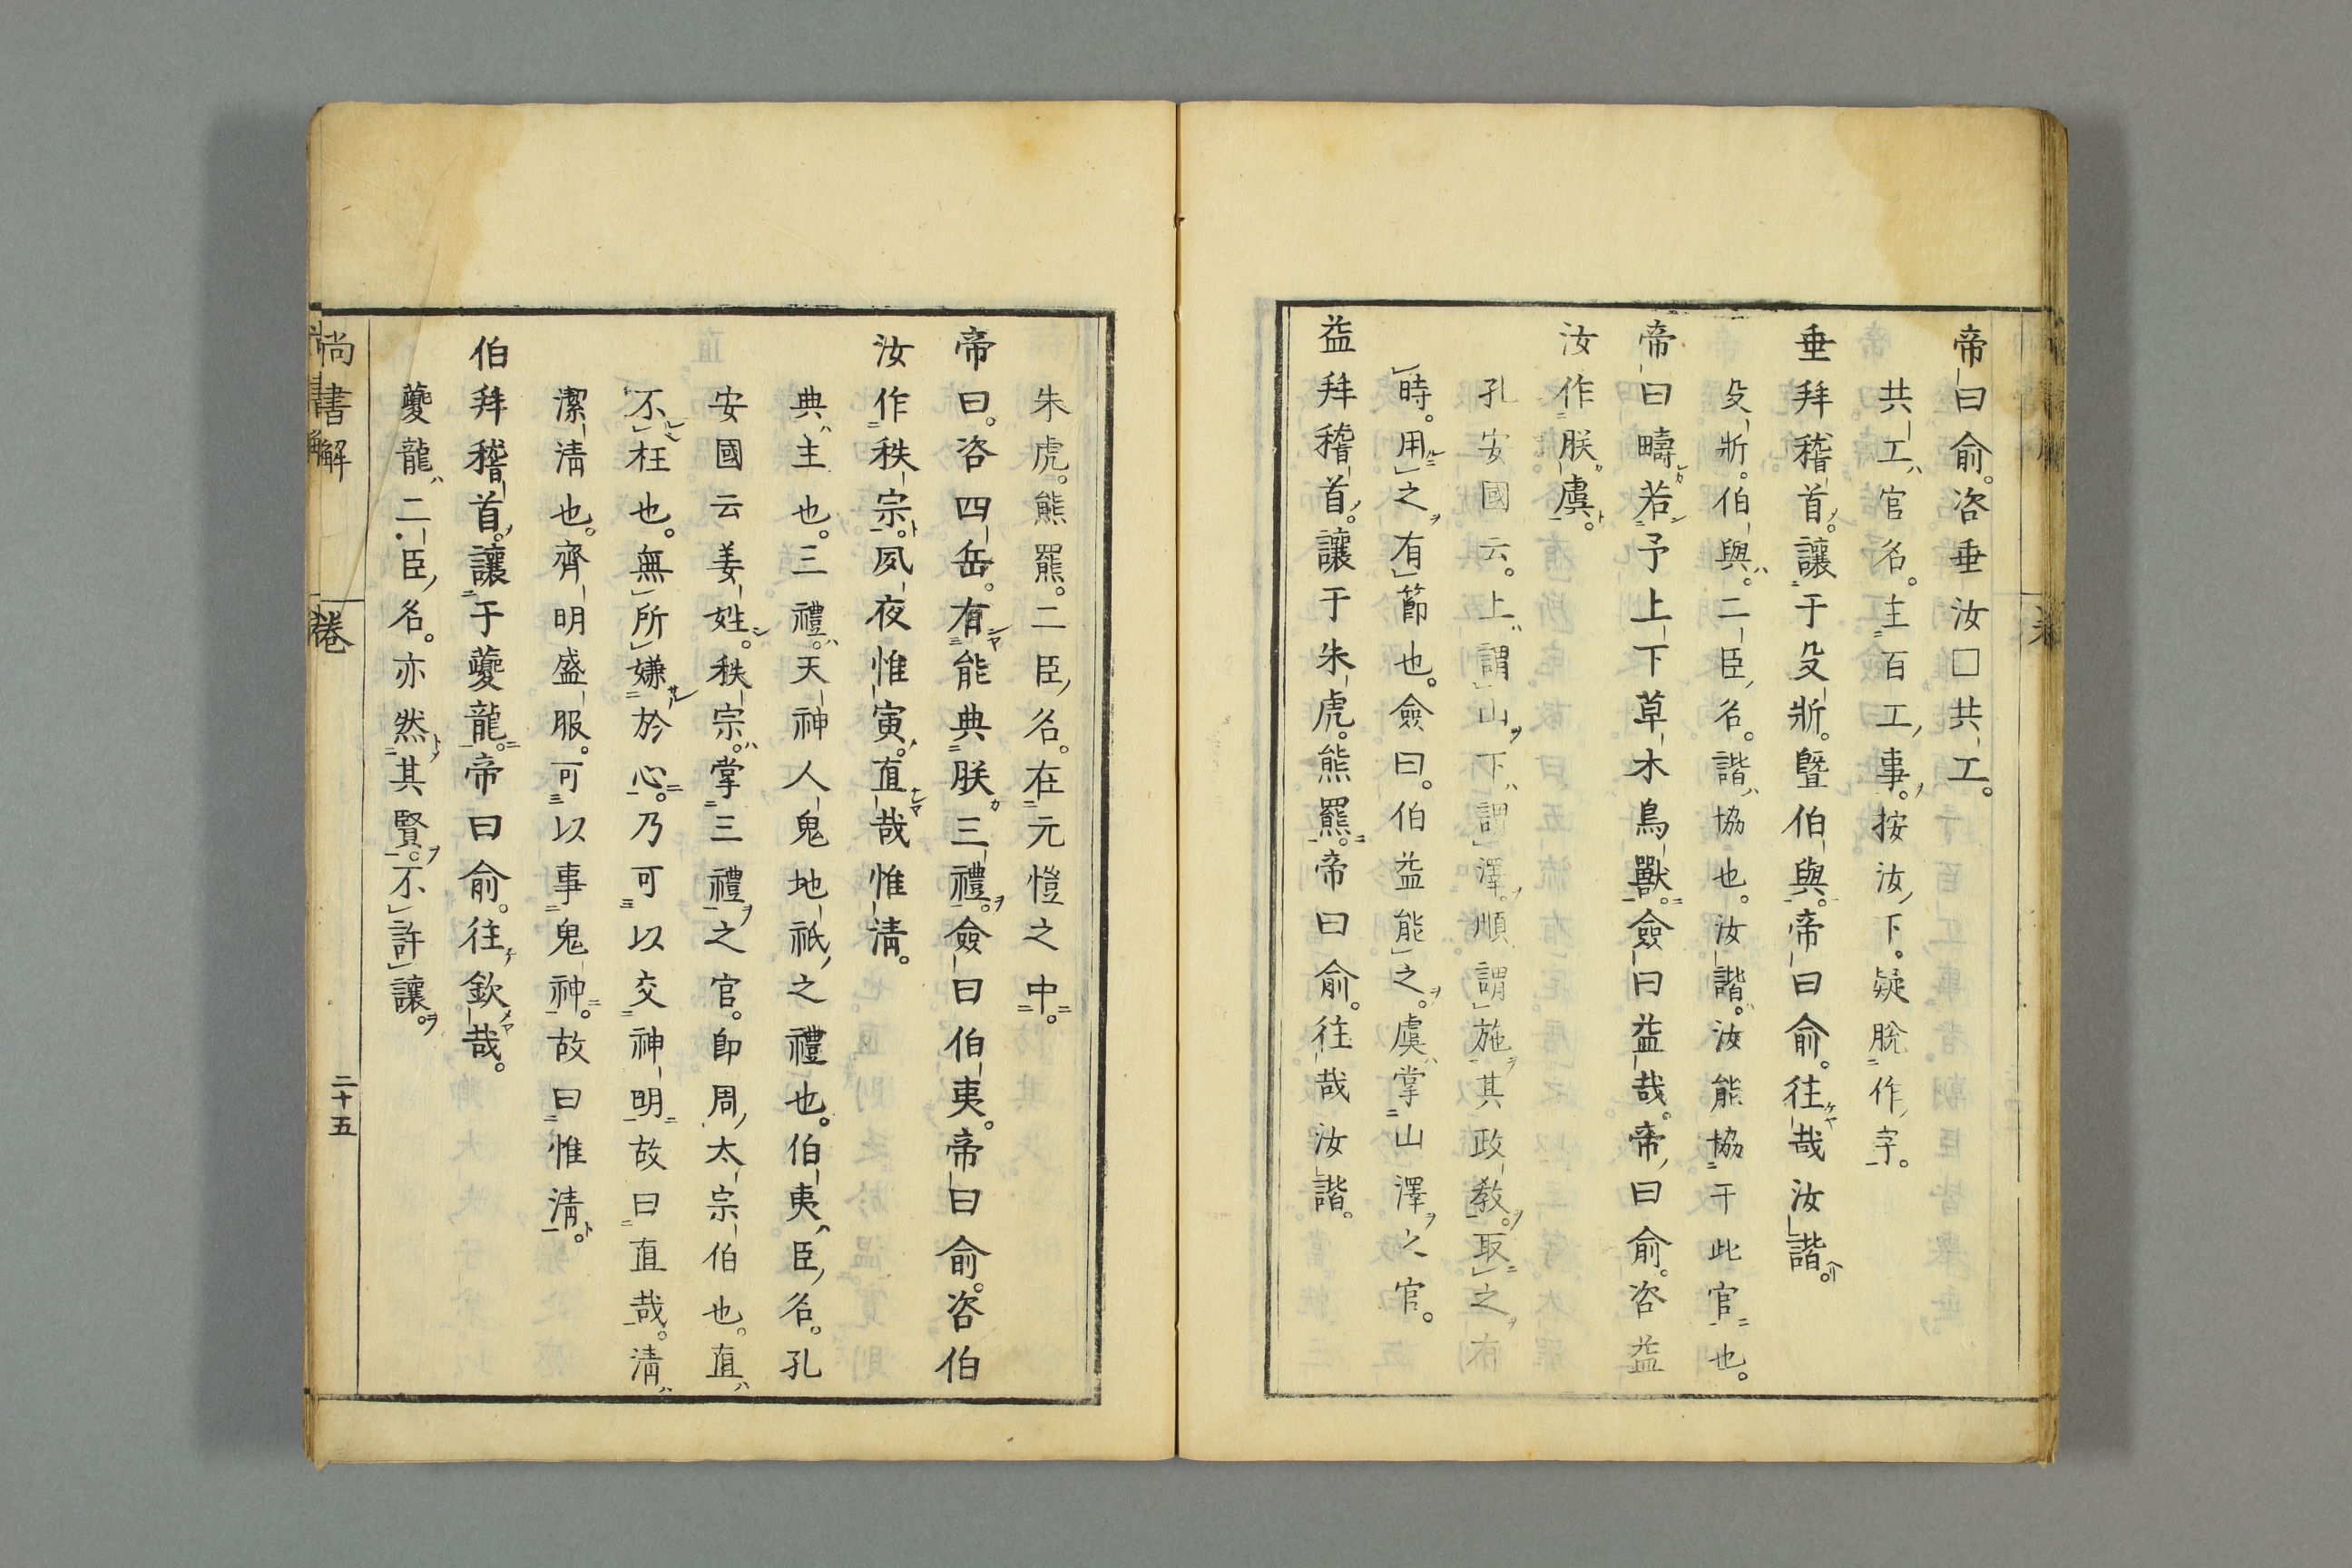 帝曰俞。咨垂汝□共工。
共工官名。主百工事。按汝下。疑脫作字。
垂拜稽首。讓于殳斨。曁伯與。帝曰俞。往哉汝諧。
殳斨。伯與。二臣名。諧協也。汝諧。汝能協于此官也。
帝曰疇若予上下草木鳥獸。僉曰益哉。帝曰俞。咨益
汝作朕虞。
孔安國云。上謂山。下謂澤。順謂施其政教。取之有
時。用之有節也。僉曰。伯益能之。虞掌山澤之官。
益拜稽首。讓于朱虎。熊羆。帝曰俞。往哉汝諧。
朱虎。熊羆。二臣名。在元愷之中。
帝曰。咨四岳。有能典朕三禮。僉曰伯夷。帝曰俞。咨伯
汝作秩宗。夙夜惟寅。直哉惟淸。
典主也。三禮。天神人鬼地祇之禮也。伯夷臣名。孔
安國云姜姓。秩宗。掌三禮之官。卽周太宗伯也。直
不枉也。無所嫌於心。乃可以交神明故曰直哉。淸
潔淸也。齊明盛服。可以事鬼神。故曰惟淸。
伯拜稽首。讓于夔龍。帝曰俞。往欽哉。
夔龍二臣名。亦然其賢。不許讓。
尚書解 卷 二十五